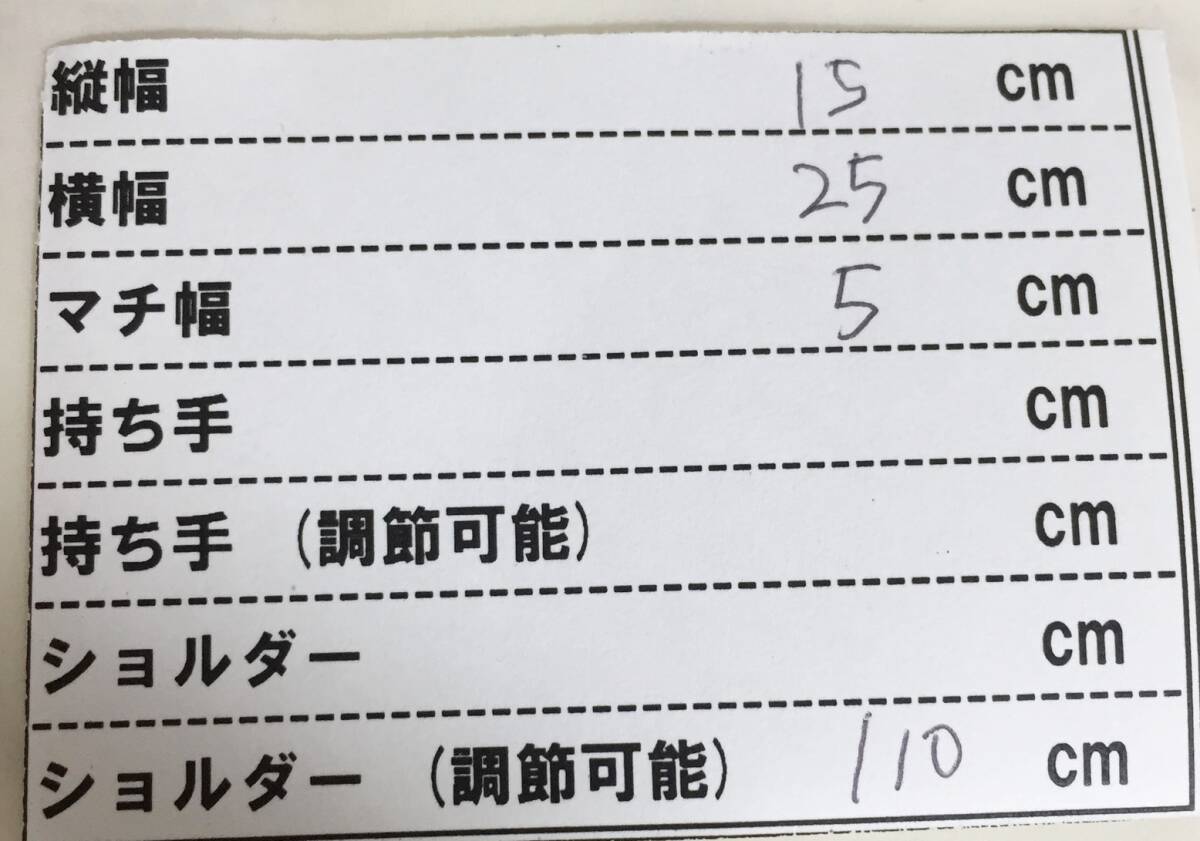 縦幅 15 cm
横幅 25 cm
マチ幅 5 cm
持ち手 cm
持ち手 (調節可能) cm
ショルダー cm
ショルダー (調節可能) 110 cm